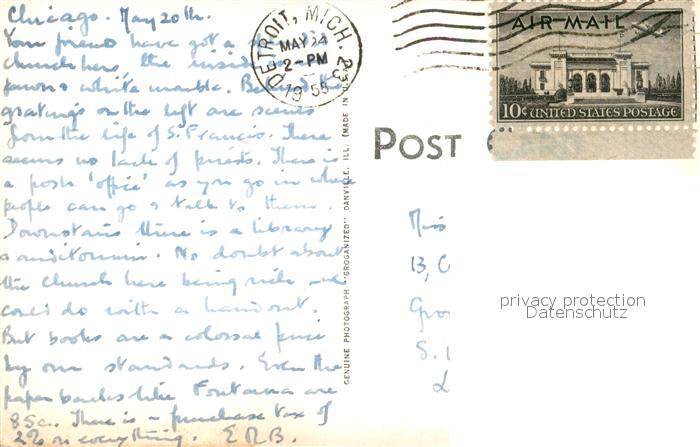 Chicago. May 20th.
Your friends have got a
church here, the inside
fawn & white marble. Behind the
gratings on the left are scenes
from the life of S. Francis. There
seems no lack of priests. There is
a posh 'office' as you go in where
people can go & talk to them.
Downstairs there is a library
& auditorium. No doubt about
the church here being rich
could do with a handout.
But books are a colossal price
by our standards. Even the
paper backs like Fontana are
85c. There is a purchase tax of
2% on everything. E.R.B.
DETROIT, MICH.
MAY 24
2-PM
1955
AIR MAIL
10¢ UNITED STATES POSTAGE
POST
GENUINE PHOTOGRAPH "GROGANIZED" DANVILLE, ILL. (MADE IN U.S.
Miss
13, C
Gro
S.
L
privacy protection
Datenschutz